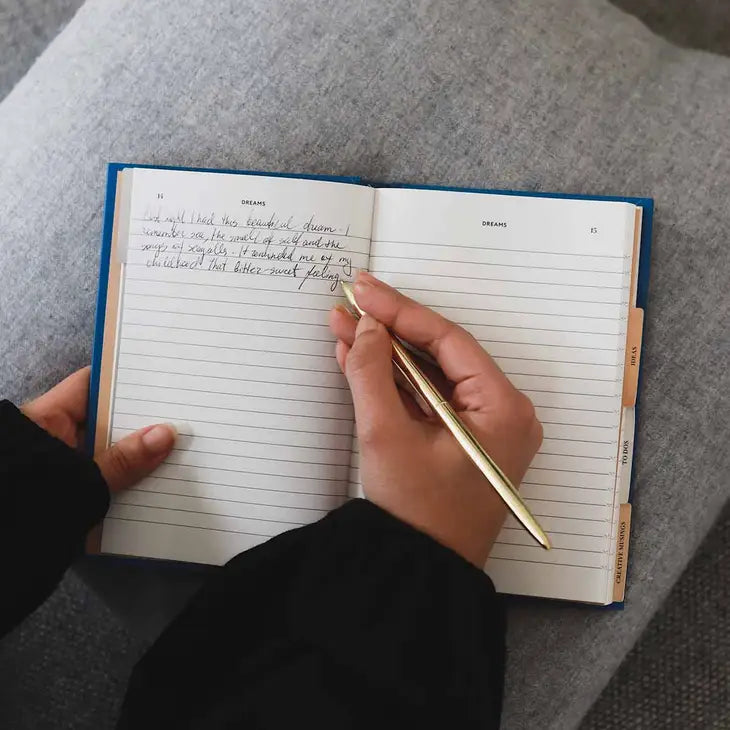 14
DREAMS
Last night I had this beautiful dream. I
remember sea, the smell of salt and the
songs of seagalls. It reminded me of my
childhood that bitter-sweet feeling
DREAMS
15
IDEAS
TO DOS
CREATIVE MUSINGS